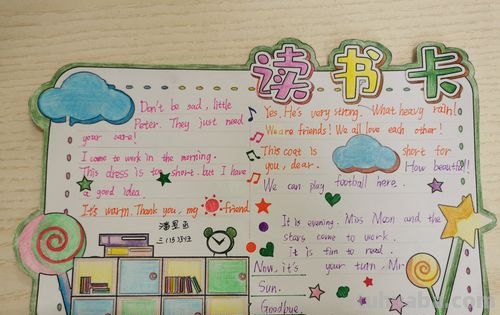 读书卡
Don't be sad, little
Peter. They just need
your care!
I come to work in the morning.
This dress is too short. but I have
a good idea.
It's warm. Thank you, my friend
Yes, He's very strong. What heavy rain!
We are friends! We all love each other!
This coat is short for
you, dear. How beautiful!
We can play football here.
It is evening. Miss Moon and the
stars come to work.
it is fun to read.
Now, it's your turn, Mr
Sun.
Goodbye.